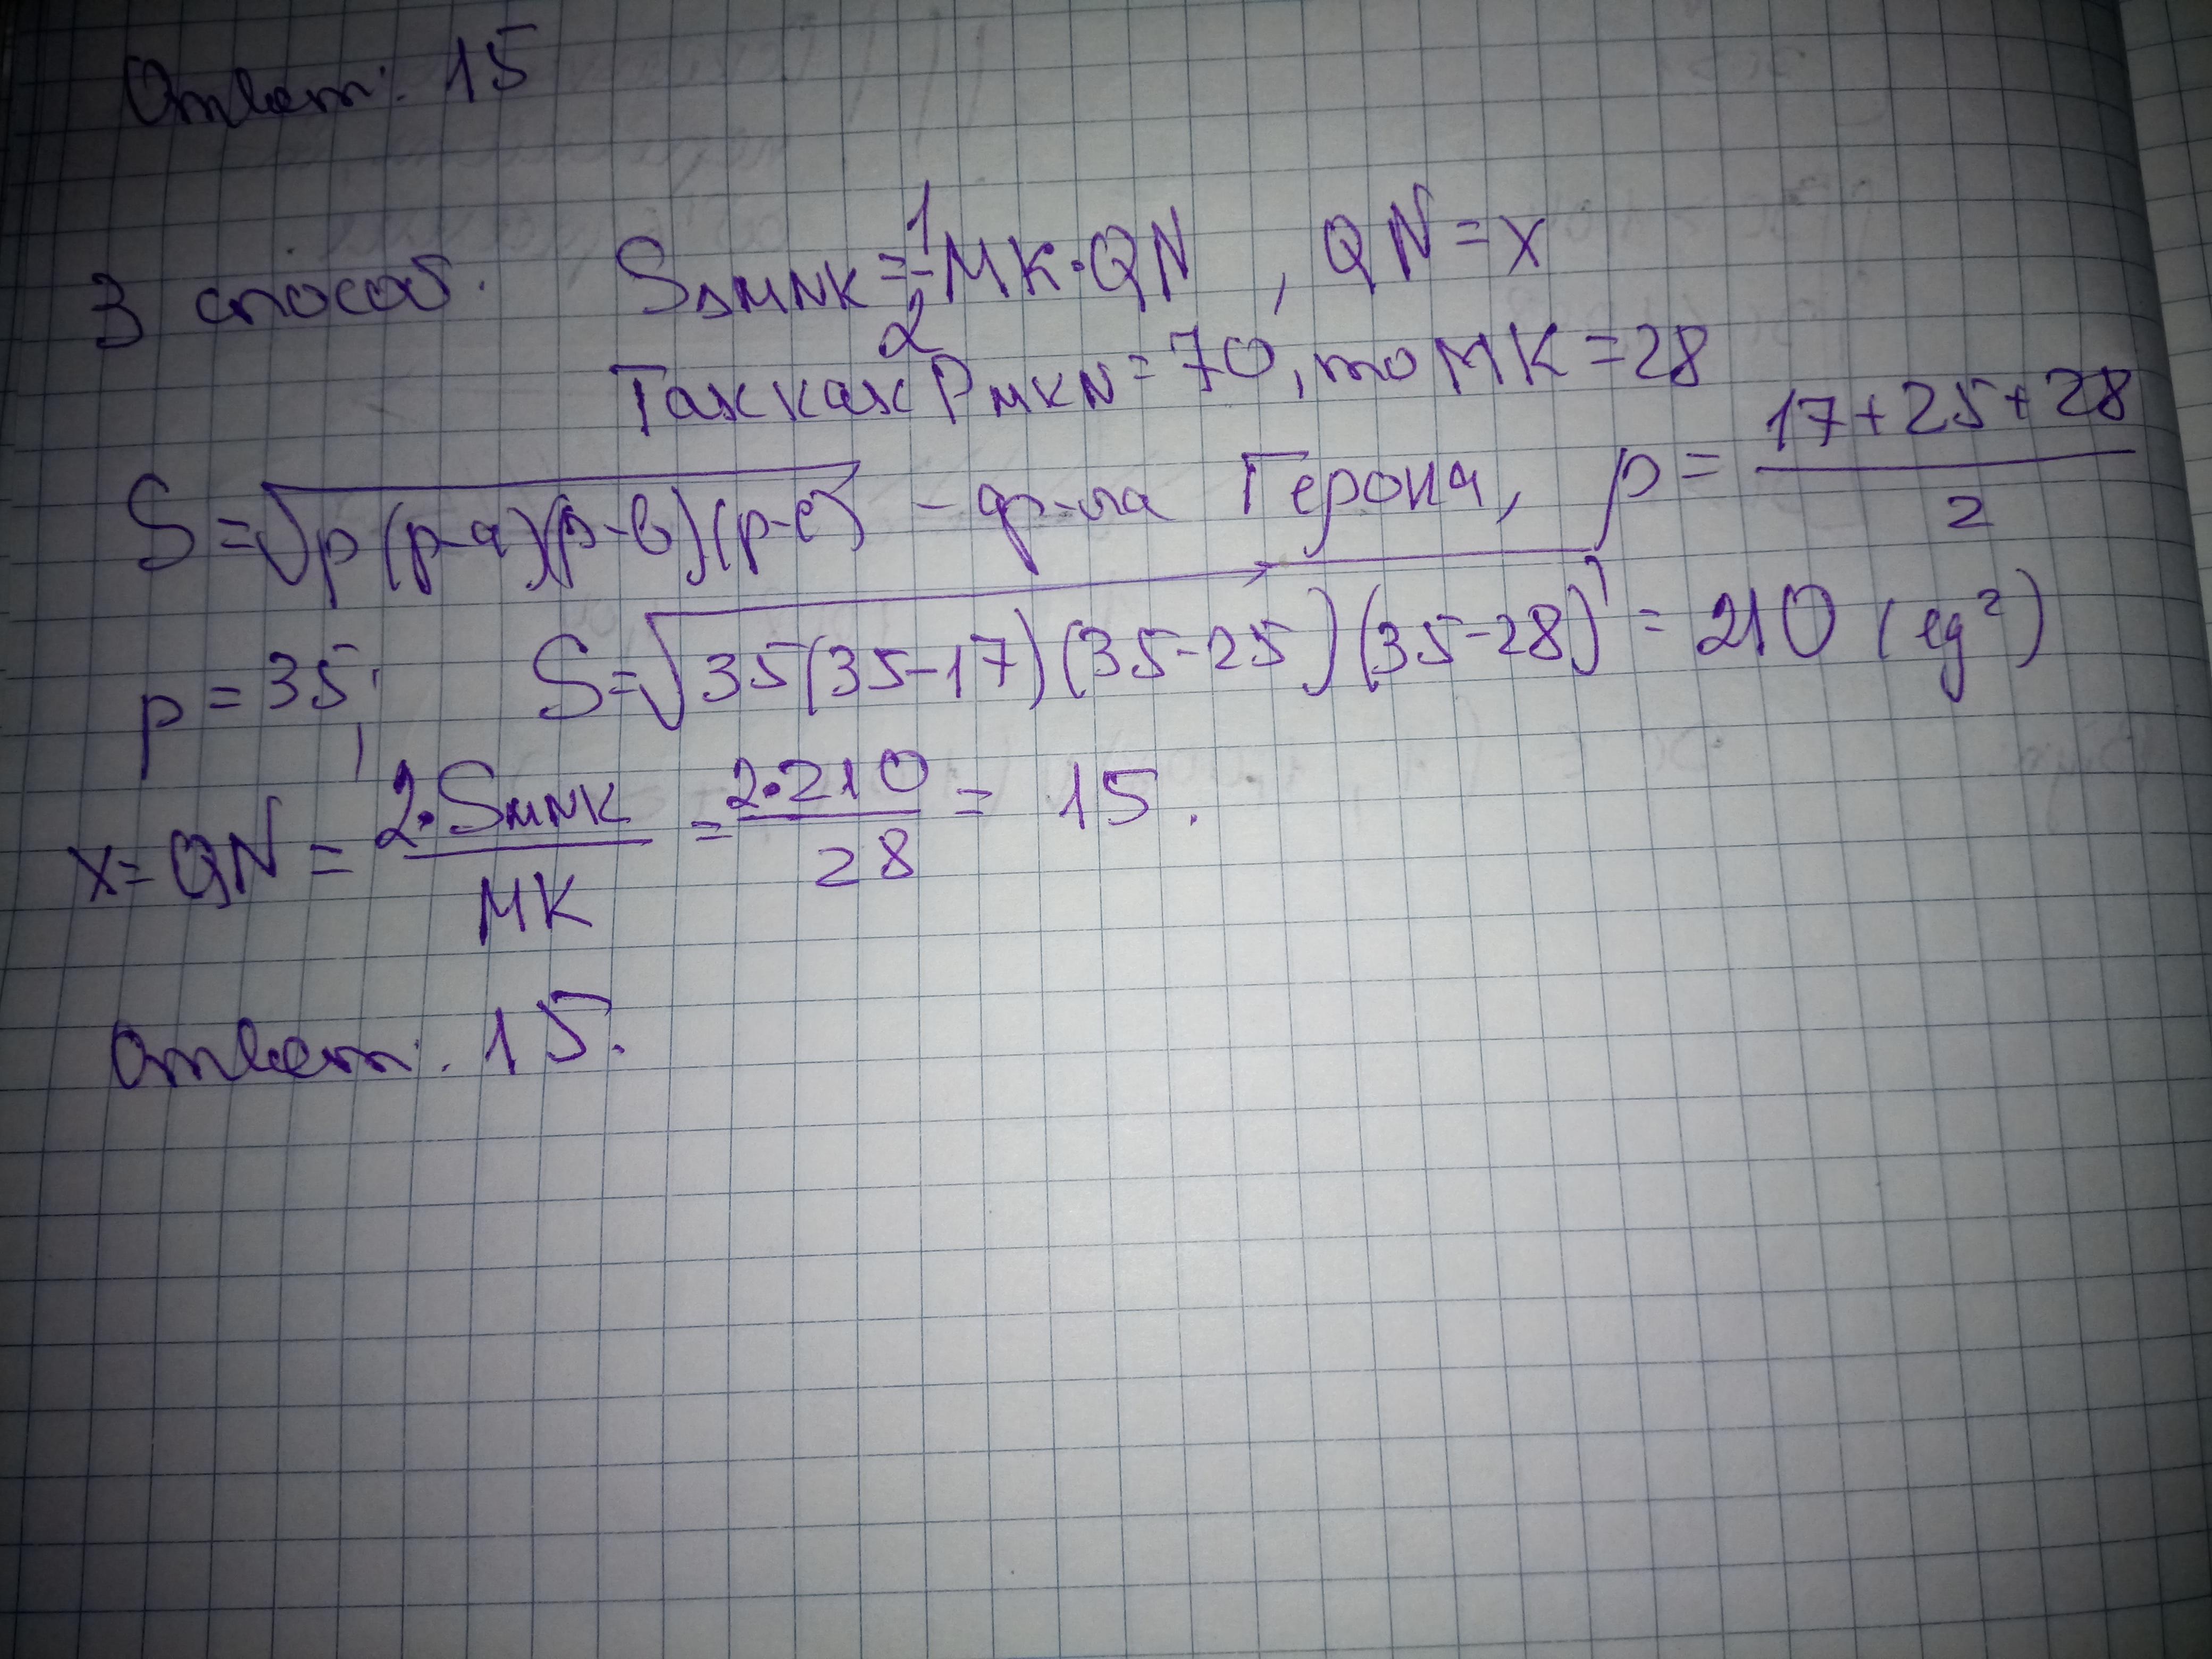 Ответ: 15
3 способ. S△MNK = 1/2 MK·QN, QN = x
Так как PMKN = 70, то MK = 28
S = √p(p-a)(p-b)(p-c) - ф-ла Герона, p = (17+25+28)/2
p = 35; S = √35(35-17)(35-25)(35-28) = 210 (ед²)
x = QN = 2·SMNK/MK = 2·210/28 = 15.
Ответ. 15.